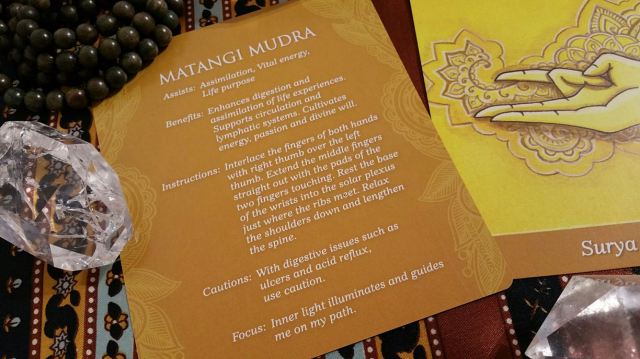 MATANGI MUDRA
Assists: Assimilation, Vital energy,
Life purpose
Benefits: Enhances digestion and
assimilation of life experiences.
Supports circulation and
lymphatic systems. Cultivates
energy, passion and divine will.
Instructions: Interlace the fingers of both hands
with right thumb over the left
thumb. Extend the middle fingers
straight out with the pads of the
two fingers touching. Rest the base
of the wrists into the solar plexus
just where the ribs mɔet. Relax
the shoulders down and lengthen
the spine.
Cautions: With digestive issues such as
ulcers and acid reflux,
use caution.
Focus: Inner light illuminates and guides
me on my path.
Surya